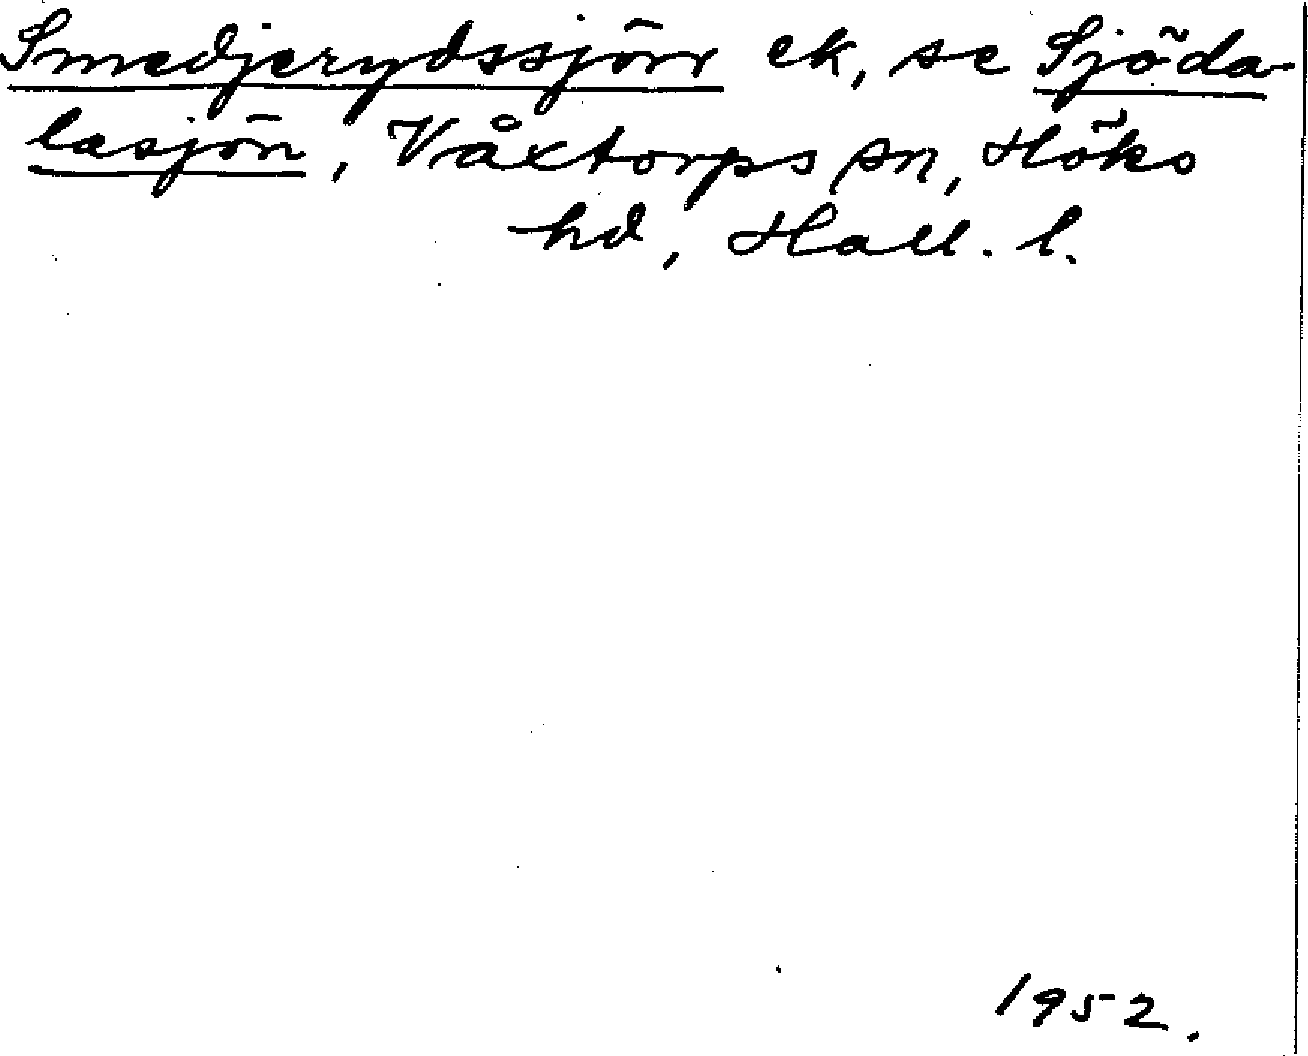 Smedjerydssjön ek, se Sjöda-
lasjön, Våxtorps sn, Höks
hd, Hall. l.
1952.